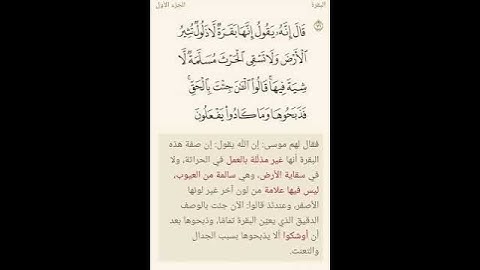 البقرة
الجزء الأول
٧١
قَالَ إِنَّهُۥ يَقُولُ إِنَّهَا بَقَرَةٌ لَّا ذَلُولٌ تُثِيرُ
ٱلْأَرْضَ وَلَا تَسْقِى ٱلْحَرْثَ مُسَلَّمَةٌ لَّا
شِيَةَ فِيهَا ۚ قَالُوا۟ ٱلْـَٔـٰنَ جِئْتَ بِٱلْحَقِّ ۚ
فَذَبَحُوهَا وَمَا كَادُوا۟ يَفْعَلُونَ
فقال لهم موسى: إن الله يقول: إن صفة هذه
البقرة أنها غير مذلّلة بالعمل في الحراثة، ولا
في سقاية الأرض، وهي سالمة من العيوب،
ليس فيها علامة من لون آخر غير لونها
الأصفر، وعندئذ قالوا: الآن جئت بالوصف
الدقيق الذي يعيّن البقرة تمامًا، وذبحوها بعد
أن أوشكوا ألا يذبحوها بسبب الجدال
والتعنت.